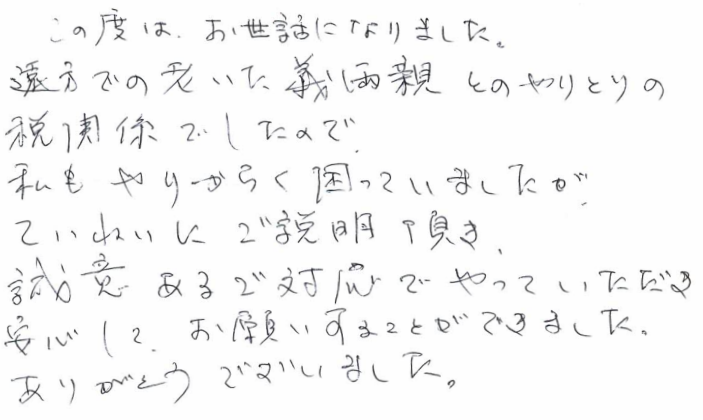 この度は、お世話になりました。
遠方での老いた義両親とのやりとりの
税関係でしたので、
私も やりづらく困っていましたが、
ていねいに ご説明頂き、
誠意あるご対応でやっていただき
安心して、お願いすることができました。
ありがとうございました。